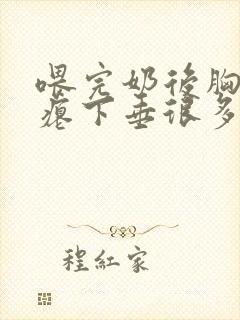 喂完奶後胸
瘪下垂很多
程紅家